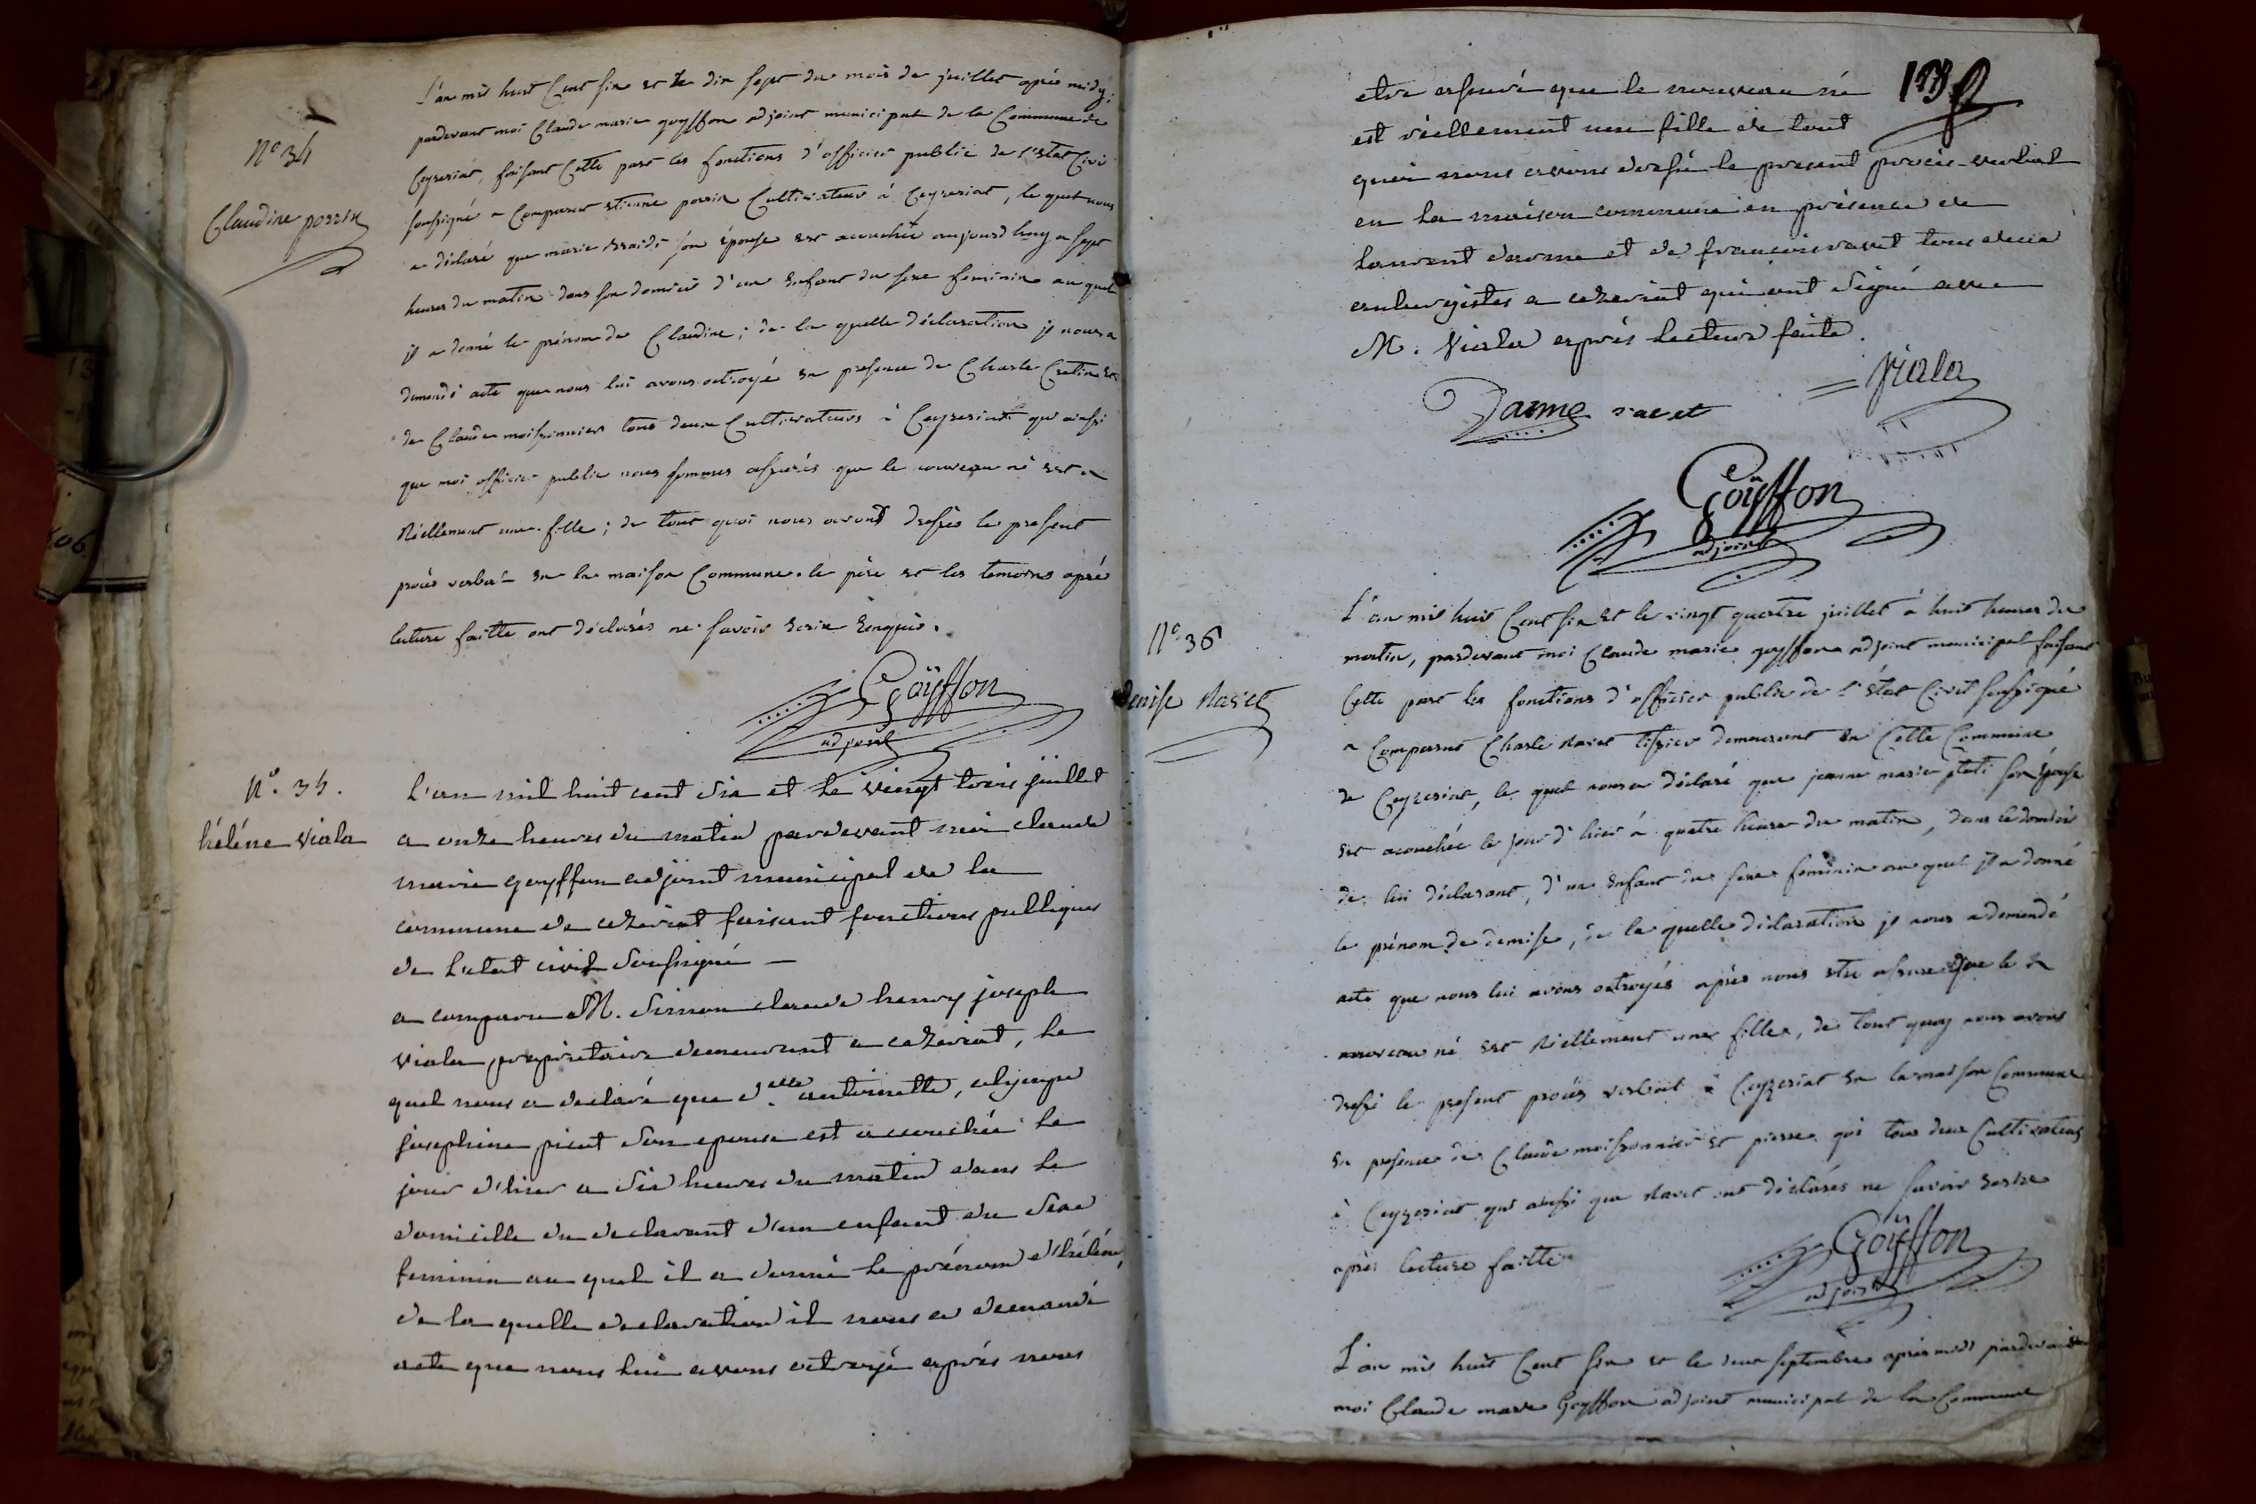 L'an mil huit Cent six et le dix sept du mois de juillet après midy,
pardevant moi Claude marie goyffon adjoint municipal de la Commune de
Ceyzeriat, faisant Cette part les fonctions d'officier public de l'état Civi
N° 34
soussigné a Comparut etienne perrin Cultivateur à Ceyzeriat, le quel nous
Claudine perrin
a déclaré que marie son épouse est acouchée aujourd'huy a sept
heures du matin dans son domicile d'un enfant du sexe feminin au quel
il a donné le prénom de Claudine; de la quelle déclaration il nous a
demandé acte que nous lui avons octroyé en presence de Charle Cretin et
de Claude moissonnier tous deux Cultivateurs à Ceyzeriat qu'ainsi
que moi officier public nous sommes assurés que le nouveau né est
Réellement une fille; de tout quoi nous avons dressés le present
procès verbal en la maison Commune. le père et les temoins après
lecture faitte ont déclarés ne savoir ecrire enquis.
Goÿffon
adjoint
N°. 35.
hélène viala
L'an mil huit cent six et le vingt trois juillet
a onze heures du matin pardevant moi claude
marie goyffon adjoint municipal de la
commune de cezeriat faisant fonctions publiques
de l'etat civil soussigné
a comparu M. simon claude henry joseph
viala propriétaire demeurant a cezeriat, le
quel nous a declaré que d.elle antoinette, olympe
josephine piout son epouse est accouchée le
jour d'hier a six heures du matin dans le
domicille du declarant d'un enfant du sexe
feminin au quel il a donné le prénom d'hélène,
de la quelle declaration il nous a demandé
acte que nous lui avons octroyé après nous
etre assuré que le nouveau né
est réellement une fille de tout
quoi nous avons dressé le present procès-verbal
en la maison commune en présence de
laurent darme et de francois ravet tous deux
aubergistes a cezeriat qui ont signé avec
M. Viala après lecture faite.
Viala
Darme ravet
Goÿffon
adjoint
N° 36
Denise Ravet
L'an mil huit Cent six et le vingt quatre juillet à huit heures du
matin, pardevant moi Claude marie goyffon adjoint municipal faisant
Cette part les fonctions d'officier public de l'état Civil soussigné
a Comparut Charle Ravet tissier demeurant en Cette Commune
de Ceyzeriat, le quel nous a déclaré que jeanne marie son épouse
est acouchée le jour d'hier à quatre heures du matin, dans le domicile
de lui déclarant, d'un enfant du sexe feminin au quel il a donné
le prénom de denise, de la quelle déclaration il nous a demendé
acte que nous lui avons octroyés après nous etre assuré que le
nouveau né est Réellement une fille, de tout quoy nous avons
dressé le present procès verbal à Ceyzeriat en la maison Commune
en presence de Claude moissonnier et pierre goi tous deux Cultivateurs
à Ceyzeriat qui ainsi que Ravet ont déclarés ne savoir ecrire
après lecture faitte
Goÿffon
adjoint
L'an mil huit Cent six et le deux septembre après midi pardevant
moi Claude marie Goyffon adjoint municipal de la Commune